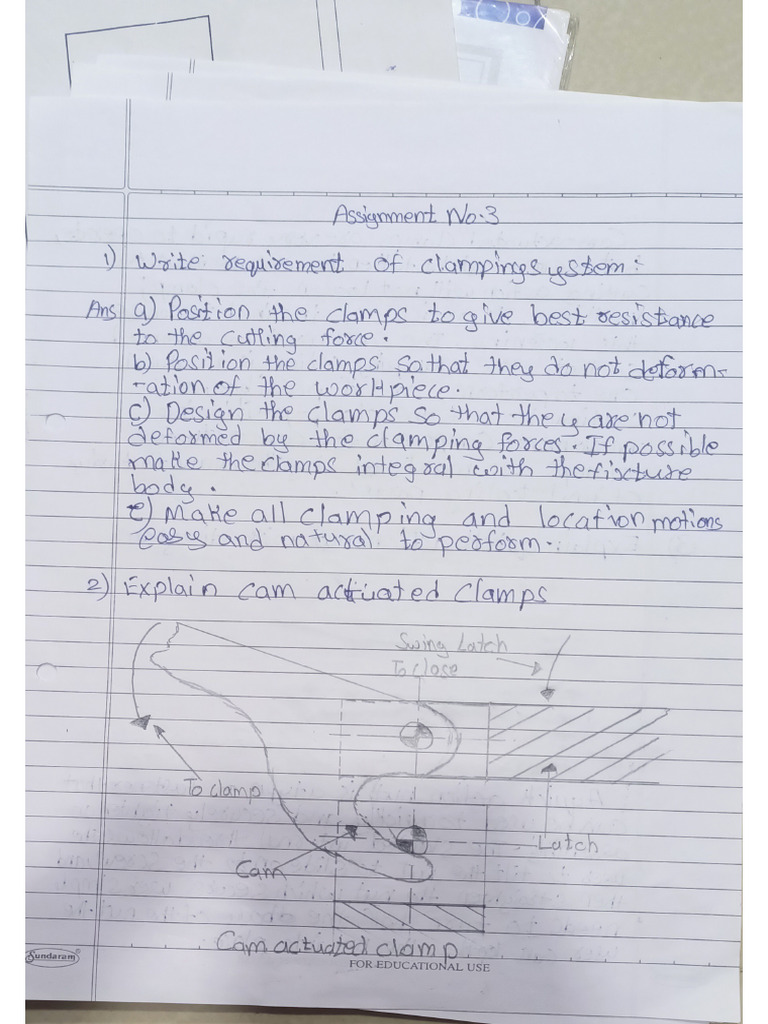 Assignment No.3
1) Write requirement of clamping system:
Ans a) Position the clamps to give best resistance
to the cutting force.
b) Position the clamps so that they do not deform-
-ation of the workpiece.
c) Design the clamps so that they are not
deformed by the clamping forces. If possible
make the clamps integral with the fixture
body.
e) Make all clamping and location motions
easy and natural to perform.
2) Explain cam actuated clamps
Swing Latch
To close
To clamp
Latch
Cam
Cam actuated clamp
Sundaram
FOR EDUCATIONAL USE